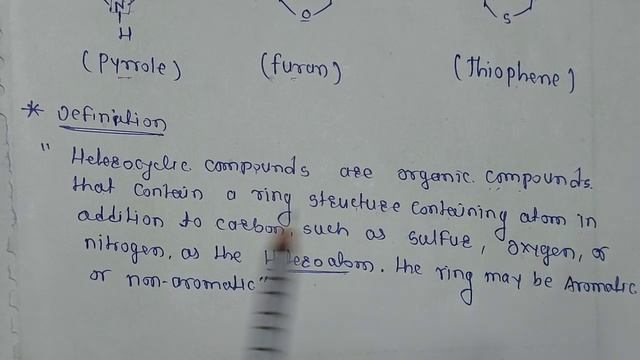 N
H
O
S
(Pyrrole) (furan) (Thiophene)
* Definition
" Heterocyclic compounds are organic compounds.
that contain a ring structure containing atom in
addition to carbon, such as sulfur, oxygen, or
nitrogen, as the Heteroatom. the ring may be Aromatic
or non-aromatic"